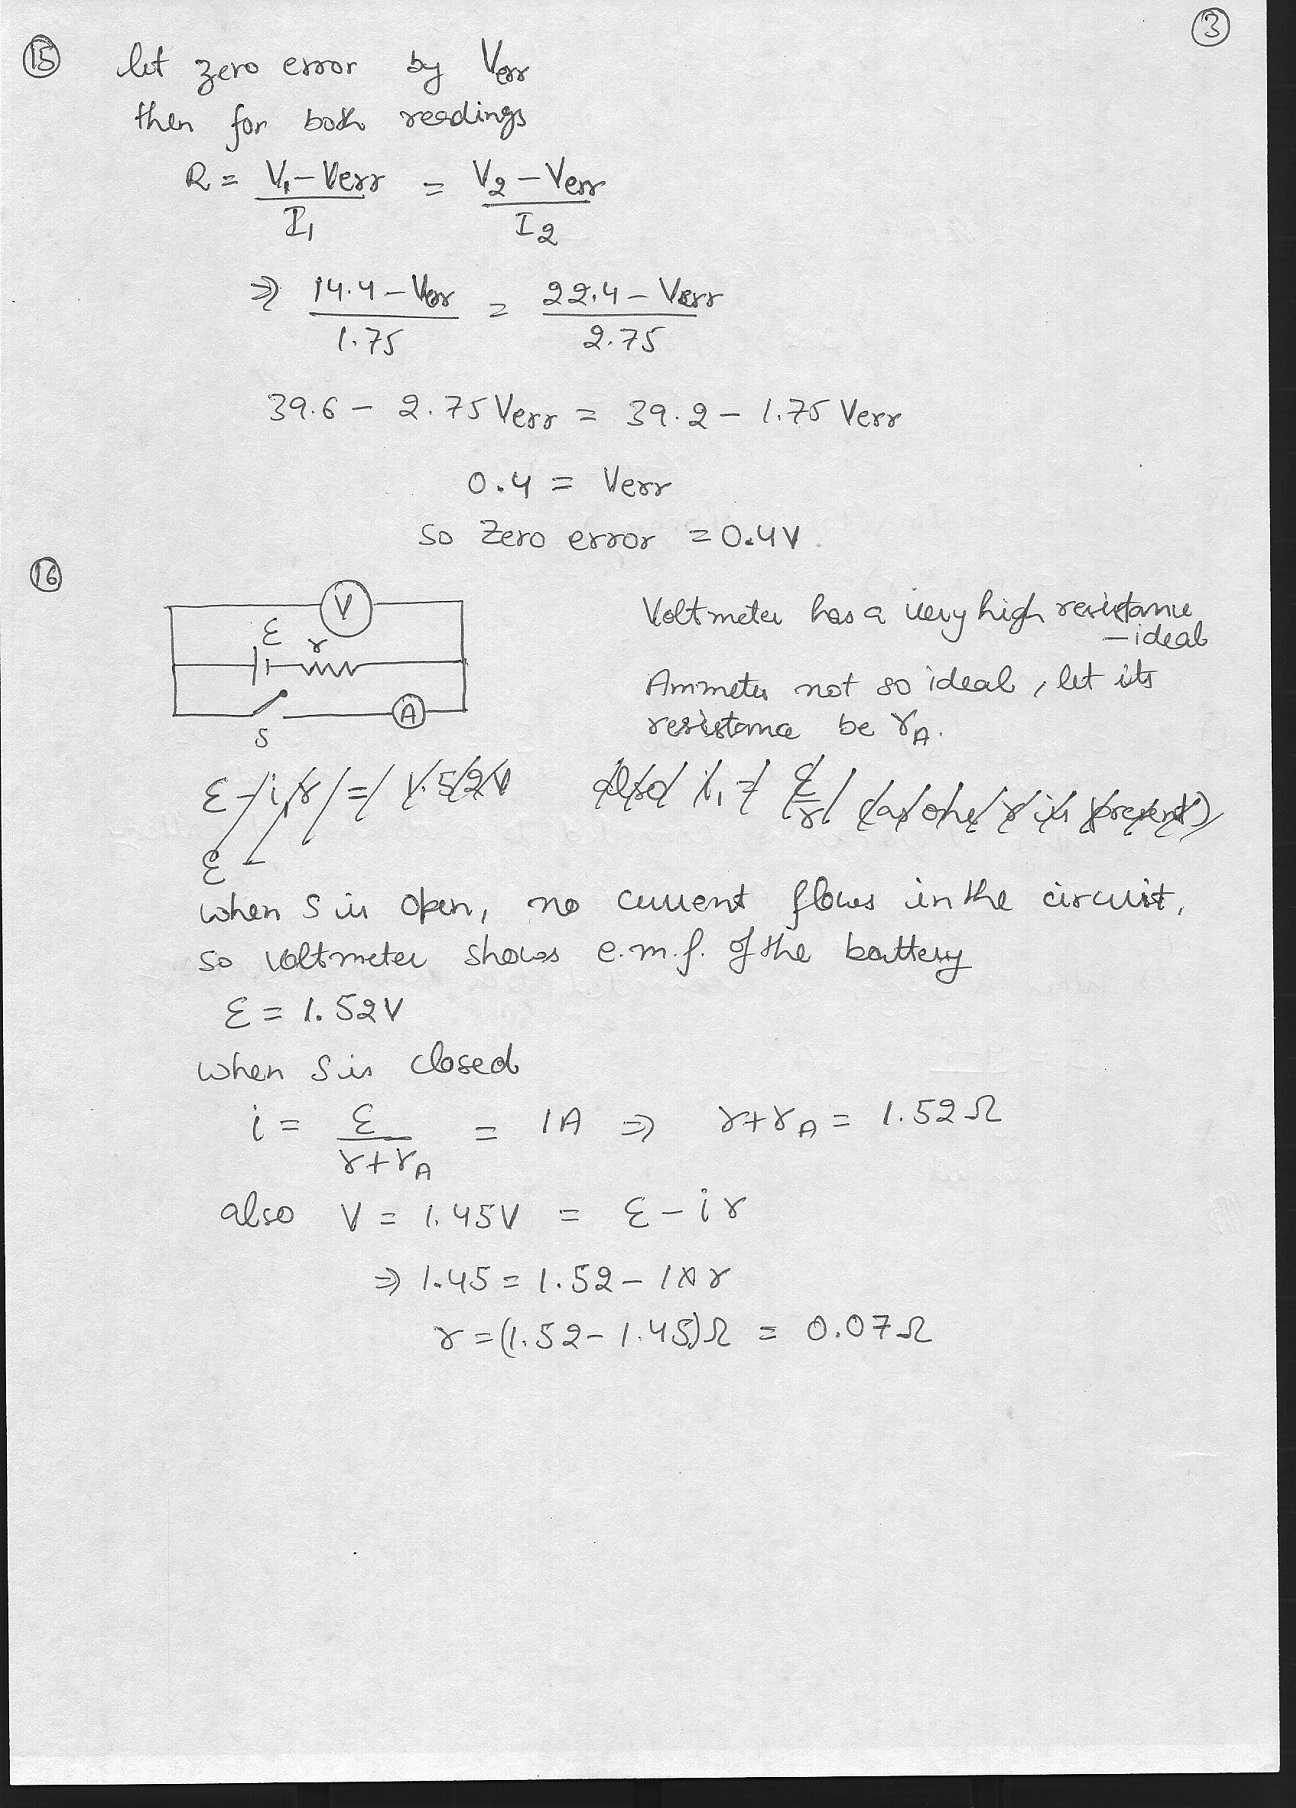 ③
⑮ let zero error by Verr
then for both readings
R = V₁ – Verr / I₁ = V₂ – Verr / I₂
⇒ 14.4 – Verr / 1.75 = 22.4 – Verr / 2.75
39.6 – 2.75 Verr = 39.2 – 1.75 Verr
0.4 = Verr
so Zero error = 0.4V.
⑯
V
ε r
S A
Voltmeter has a very high resistance
– ideal
Ammeter not so ideal, let its
resistance be r_A.
ε – i₁r = 1.52V also i₁ = ε/r (as only r is present)
ε –
when S is open, no current flows in the circuit,
so voltmeter shows e.m.f. of the battery
ε = 1.52V
when S is closed
i = ε / r + r_A = 1A ⇒ r + r_A = 1.52Ω
also V = 1.45V = ε – ir
⇒ 1.45 = 1.52 – 1×r
r = (1.52 – 1.45)Ω = 0.07Ω